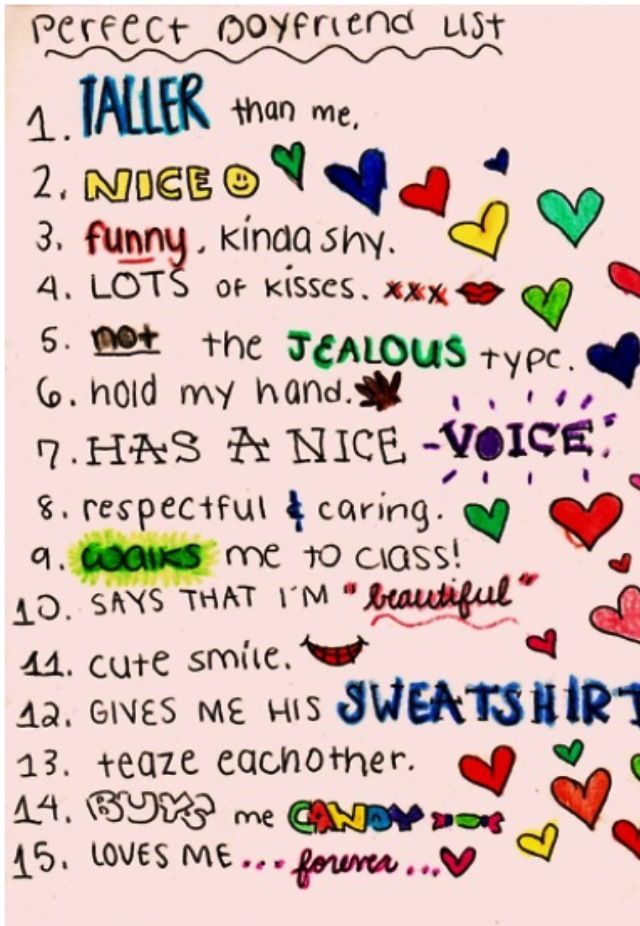 Perfect Boyfriend List
1. TALLER than me.
2. NICE
3. funny, kinda shy.
4. LOTS OF kisses. xxx
5. not the JEALOUS type.
6. hold my hand.
7. HAS A NICE -VOICE-
8. respectful & caring.
9. walks me to class!
10. SAYS THAT I'M "beautiful"
11. cute smile.
12. GIVES ME HIS SWEATSHIRT
13. teaze eachother.
14. BUYS me CANDY
15. LOVES ME... forever...